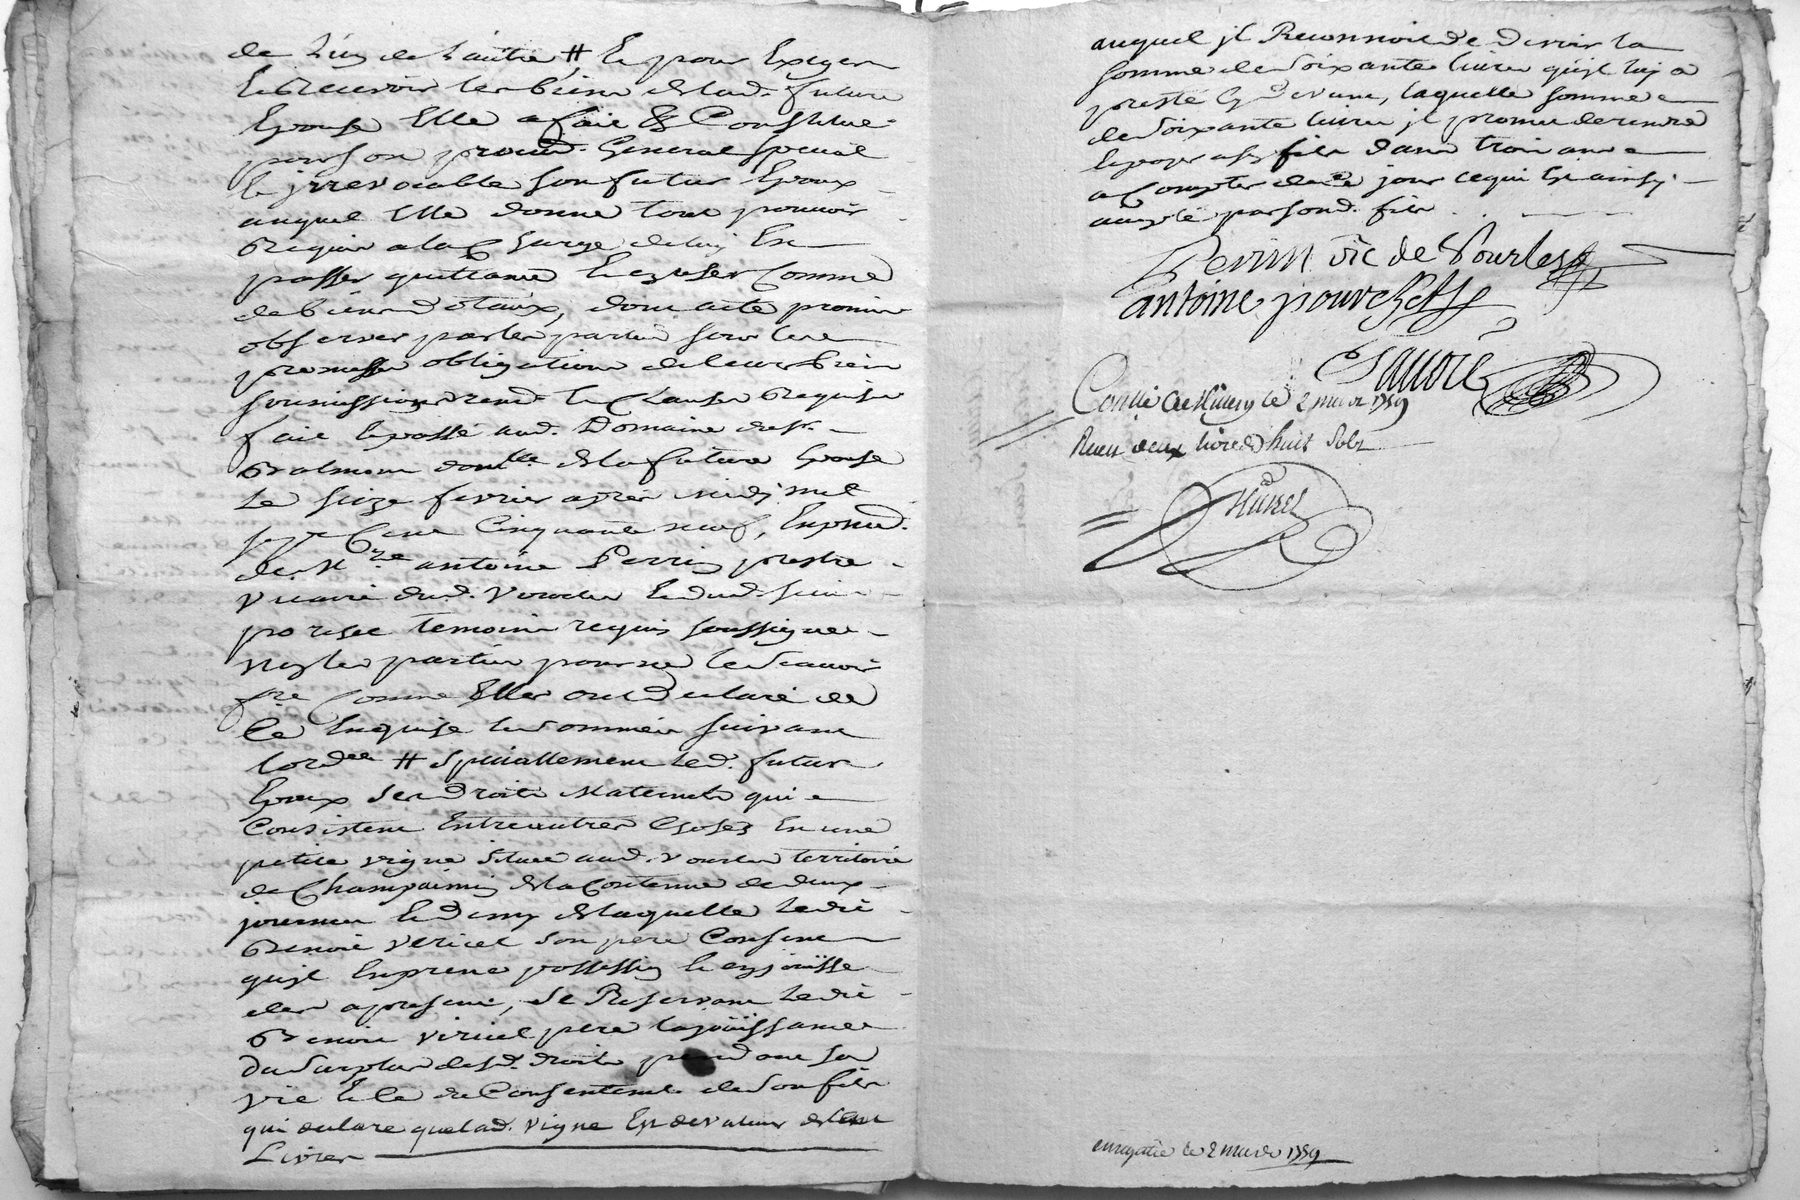 de l'un de l'autre # Et pour Exiger
Et Recevoir les biens de lad. future
Epouse Elle a fait & Constitué
pour son procur. General special
et jrrevocable son futur Epoux
auquel Elle donne tout pouvoir
Requis a la Charge de luy En
passer quittance Et en user Comme
de biens dotaux, dont acte promis
observer par les parties sous leurs
promesses obligations de leurs biens
soumissions renon. Et Clauses Requises
fait Et passé aud. Domaine du sr.
de la future Epouse
Le seize fevrier apres midy mil
sept Cent Cinquante neuf, En presence
de Mre antoine Perrin prestre
vicaire dud. Vourles Et dud. sieur
temoins requis soussignes
non les parties pour ne le scavoir
fre Comme Elles ont declaré de
Ce Enquises Et sommées suivant
lordce # speciallement led. futur
Epoux ses droits Maternels qui
Consistent Entre autres Choses En une
petite vigne située aud. vourles territoire
de Champaimin de la Contenue de deux
journees Et demy de laquelle ledit
Benoit vericel son pere Consent
qu'jl En prene possession Et en jouisse
des a present, se Reservant ledit
Benoit vericel pere la jouissance
du surplus desd. droits pendant sa
vie Et Ce du Consentemt. de son fils
qui declare que lad. vigne Est de valeur de Cent
Livres
auquel jl Reconnoit de devoir la
somme de soixante livres qu'jl luy a
presté Cy devant, laquelle somme
de soixante livres jl promet de rendre
Et payer a son fils dans trois ans
a Compter de Ce jour Ce qui Est ainsy
accepté par sond. fils
Perrin vic de Vourles
antoine pourchet
Conllé a le 2 mars 1759
Receu deux livres huit sols
enregistré le 2 mars 1759